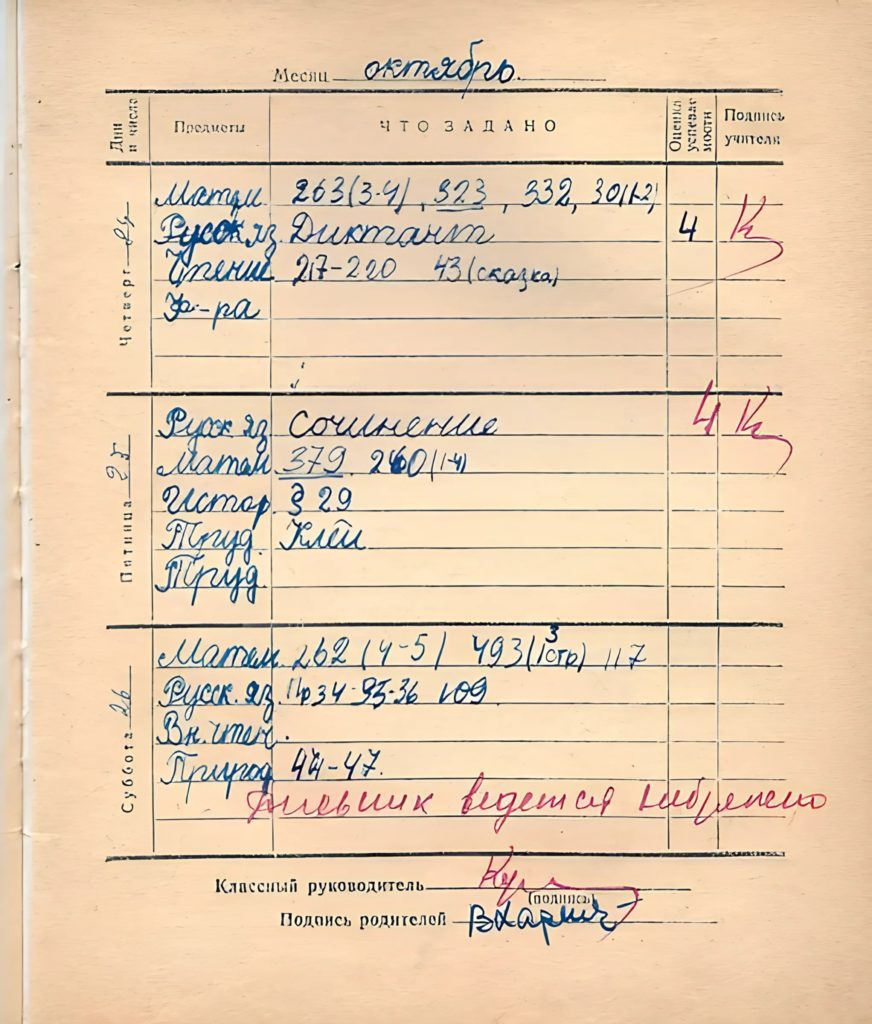 Месяц октябрь
Дни и число Предметы ЧТО ЗАДАНО Оценка успевае мости Подпись учителя
Четверг 24
Матем 263(3-4), 323, 332, 30(1-2)
Русск яз. Диктант 4 К
Чтение 217-220 43(сказка)
Ф-ра
Пятница 25
Русск яз Сочинение 4 К
Матем 379. 260(1-4)
Истор § 29
Труд. Клей
Труд.
Суббота 26
Матем. 262 (4-5) 493(1стр) 3 117
Русск. яз. Пр 34-35-36 109.
Вн. чтен.
Природ 44-47.
Дневник ведется небрежно
Классный руководитель
(подпись)
Подпись родителей